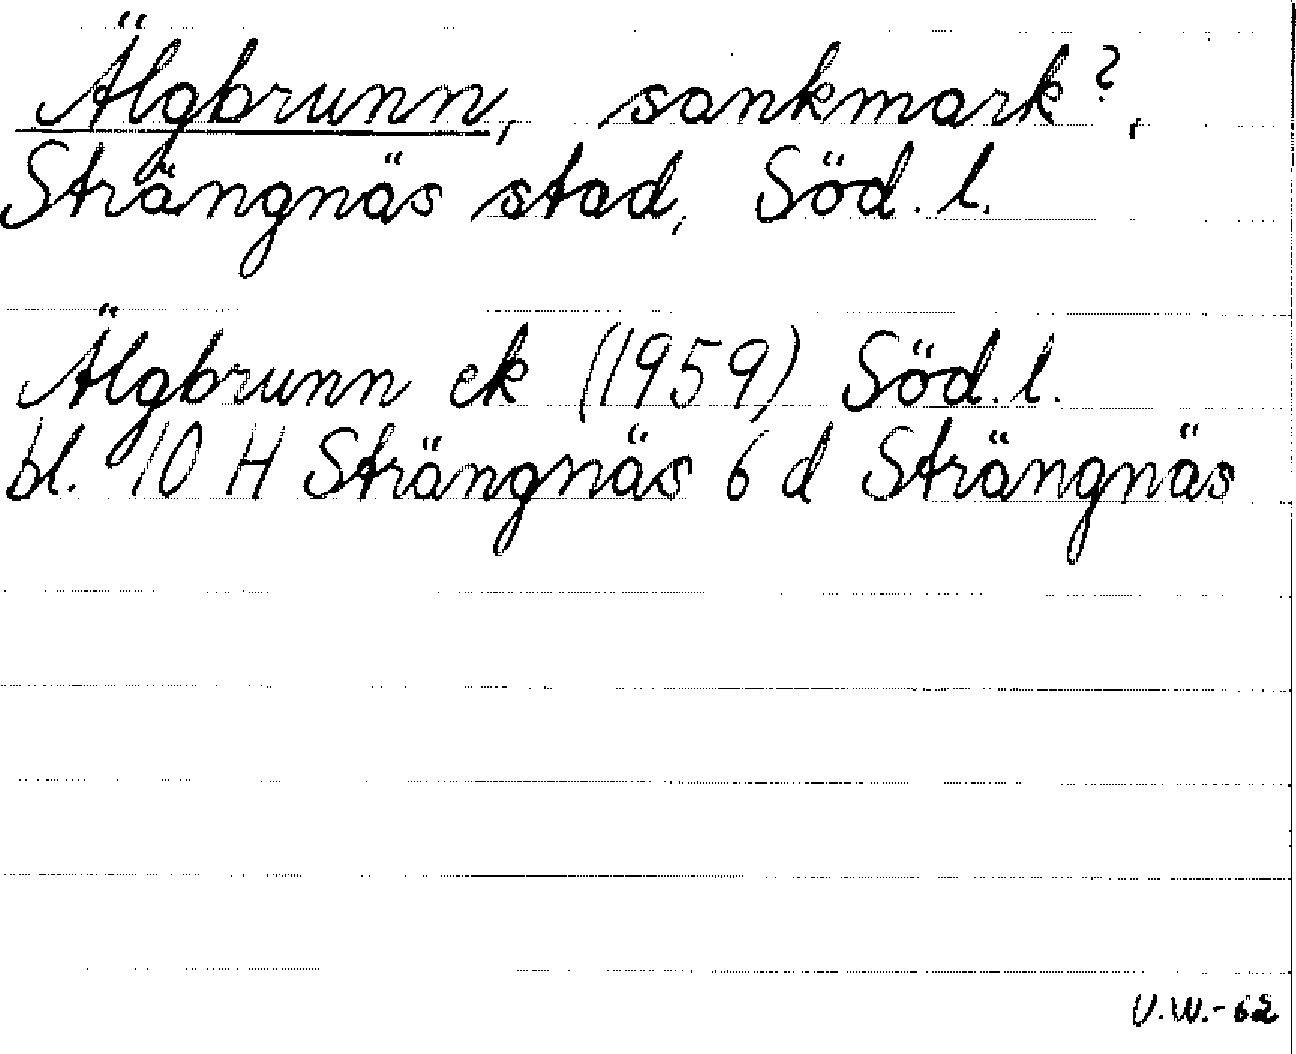 Älgbrunn, sankmark?,
Strängnäs stad, Söd. l.
Älgbrunn ek (1959) Söd. l.
bl. 10 H Strängnäs 6 d Strängnäs
V.W.-62